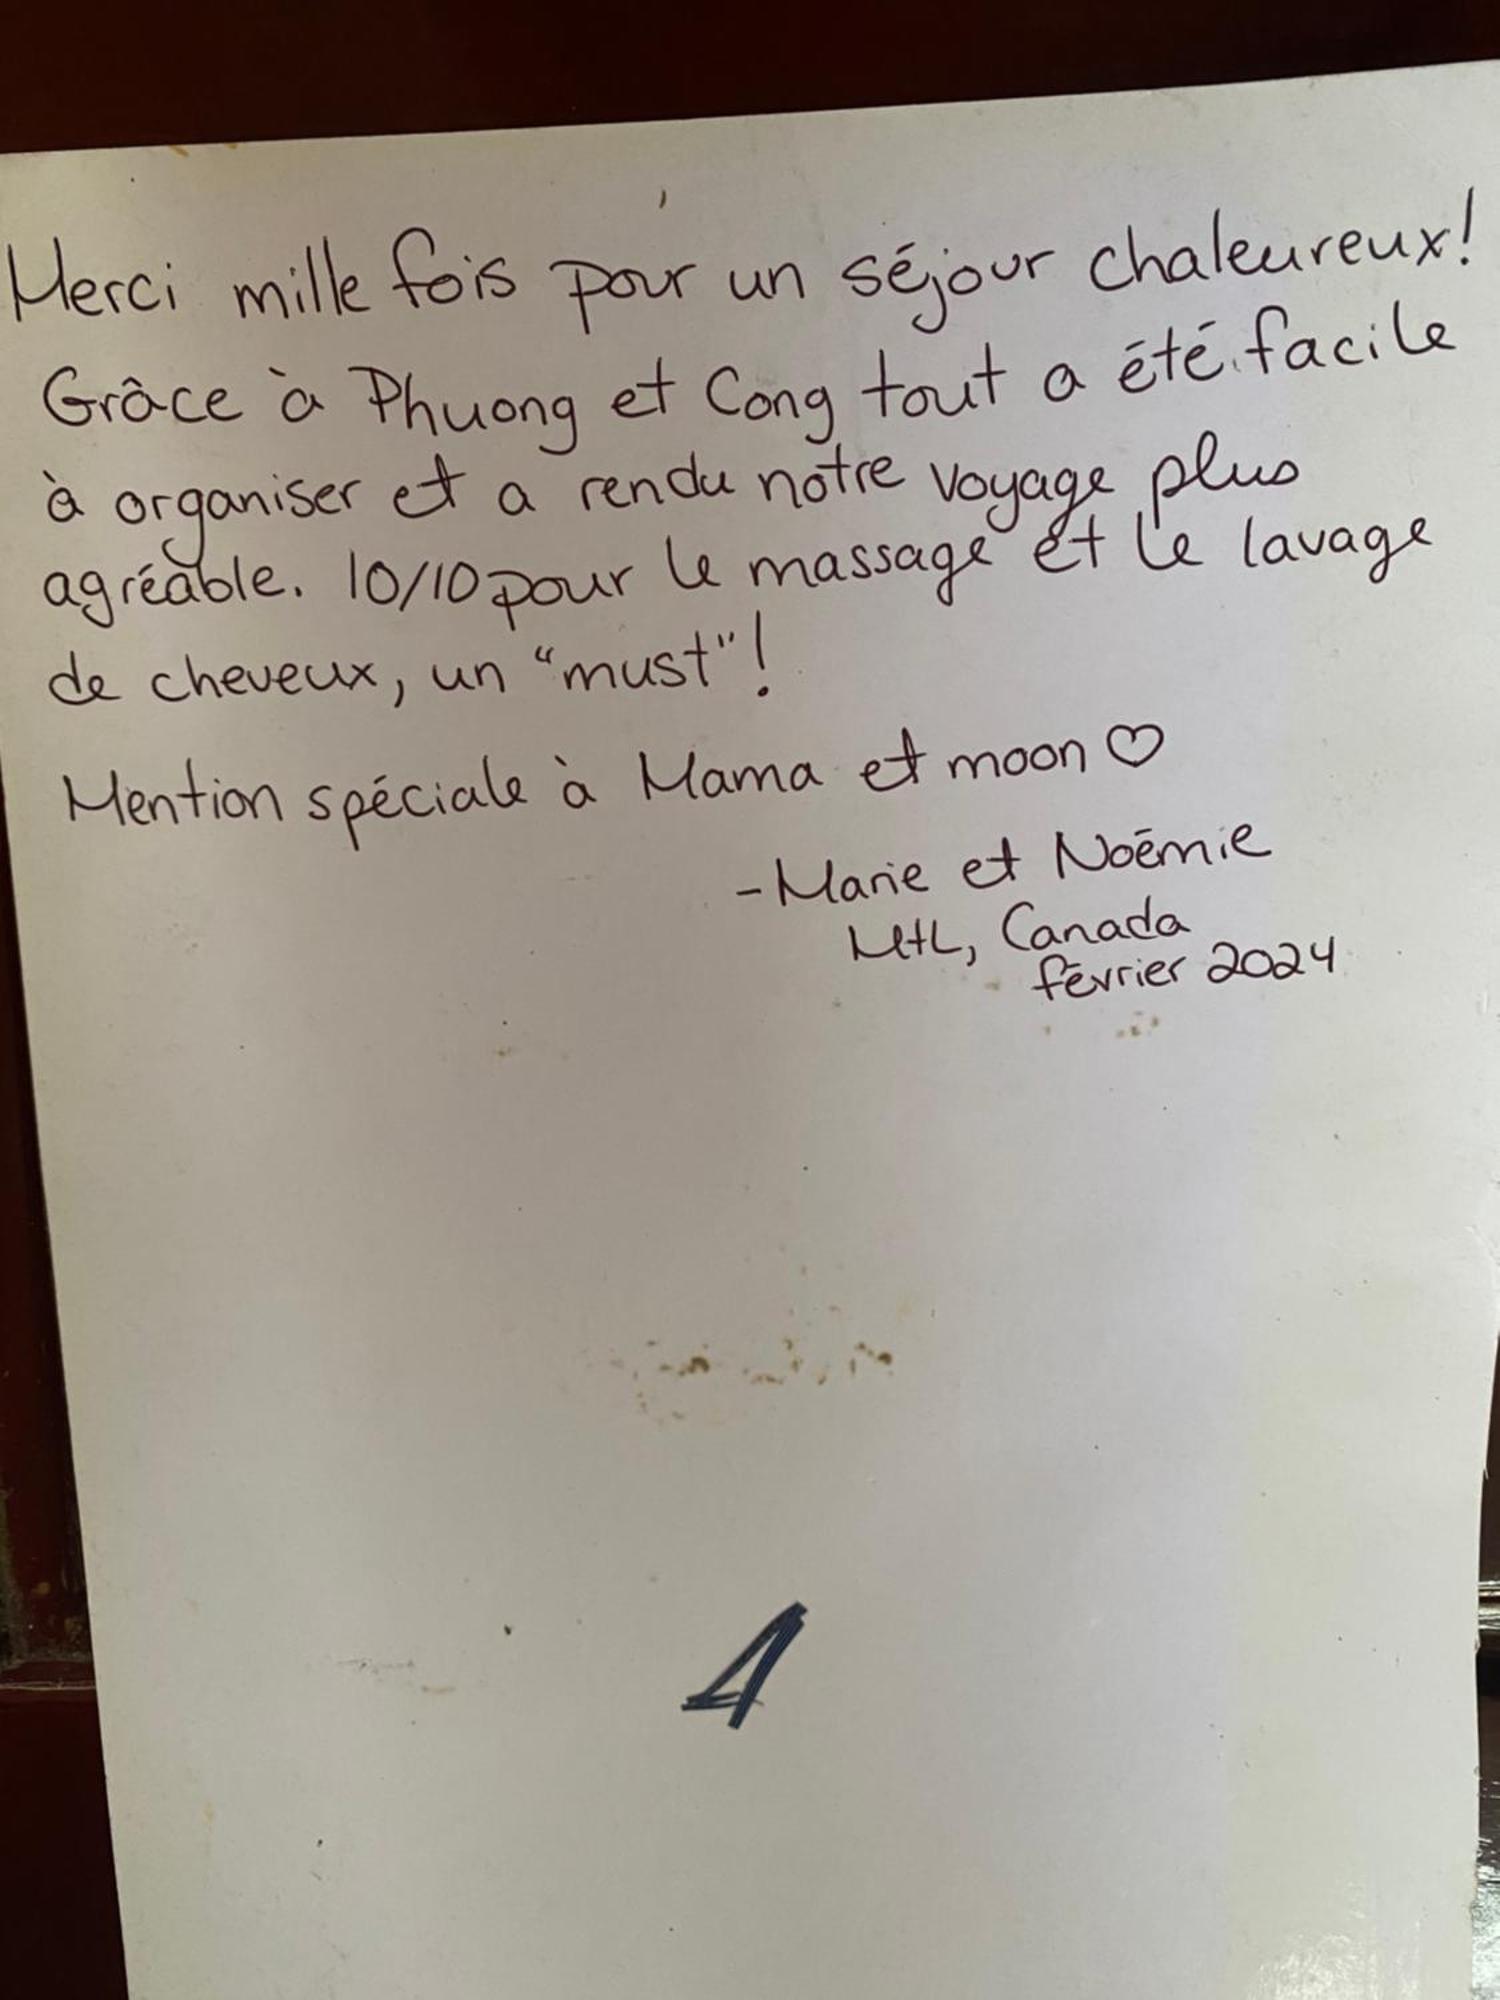 Merci mille fois pour un séjour chaleureux!
Grâce à Phuong et Cong tout a été facile
à organiser et a rendu notre voyage plus
agréable. 10/10 pour le massage et le lavage
de cheveux, un "must"!
Mention spéciale à Mama et moon ♡
-Marie et Noémie
MtL, Canada
février 2024
4